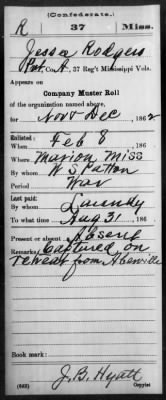 (Confederate.)
R 37 Miss.
Jessa Rodgers
Pvt Co. A, 37 Reg't Mississippi Vols.
Appears on
Company Muster Roll
of the organization named above,
for Nov & Dec, 1862
Enlisted:
When Feb 8, 186
Where Marion Miss
By whom W S Patton
Period War
Last paid:
By whom
To what time Aug 31, 186
Present or absent Absent
Remarks: Captured on
retreat from Abbeville
J. B. Hyatt
Copyist